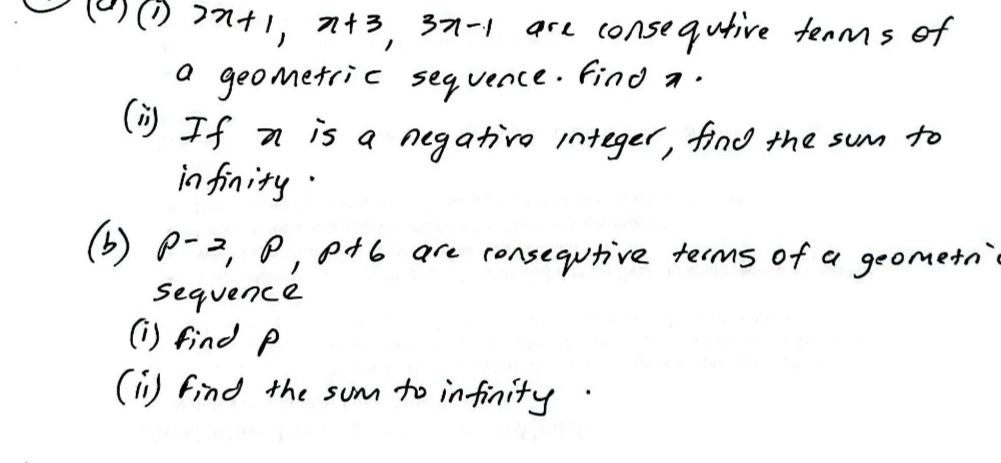 (a) (i) 2x+1, x+3, 3x-1 are consequtive terms of
a geometric sequence. find x.
(ii) If x is a negative integer, find the sum to
infinity.
(b) p-2, p, p+6 are consequtive terms of a geometric
sequence
(i) find p
(ii) find the sum to infinity.